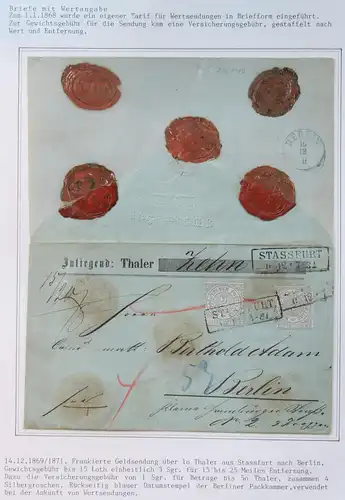 Briefe mit Wertangabe
Zum 1.1.1868 wurde ein eigener Tarif für Wertsendungen in Briefform eingeführt.
Zur Gewichtsgebühr für die Sendung kam eine Versicherungsgebühr, gestaffelt nach
Wert und Entfernung.
BERLIN
Inliegend: Thaler Zehn
STASSFURT
STASSFURT
Herrn
Cand. math. Berthold Adam
Berlin
14.12.1869/1871, Frankierte Geldsendung über 10 Thaler aus Stassfurt nach Berlin.
Gewichtsgebühr bis 15 Loth einheitlich 3 Sgr. für 15 bis 25 Meilen Entfernung.
Dazu die Versicherungsgebühr von 1 Sgr. für Beträge bis 50 Taler, zusammen 4
Silbergroschen. Rückseitig blauer Datumstempel der Berliner Packkammer,verwendet
bei der Ankunft von Wertsendungen.